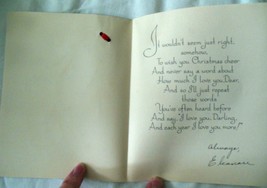 It wouldn't seem just right,
somehow,
To wish you Christmas cheer
And never say a word about
How much I love you, Dear,
And so I'll just repeat
those words
You've often heard before
And say "I love you, Darling,
And each year I love you more!"
Always,
Eleanore